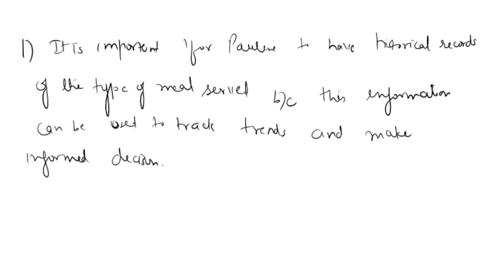 1) It is important for Pauline to have historical records
of the type of meal served b/c this information
can be used to track trends and make
informed decision.